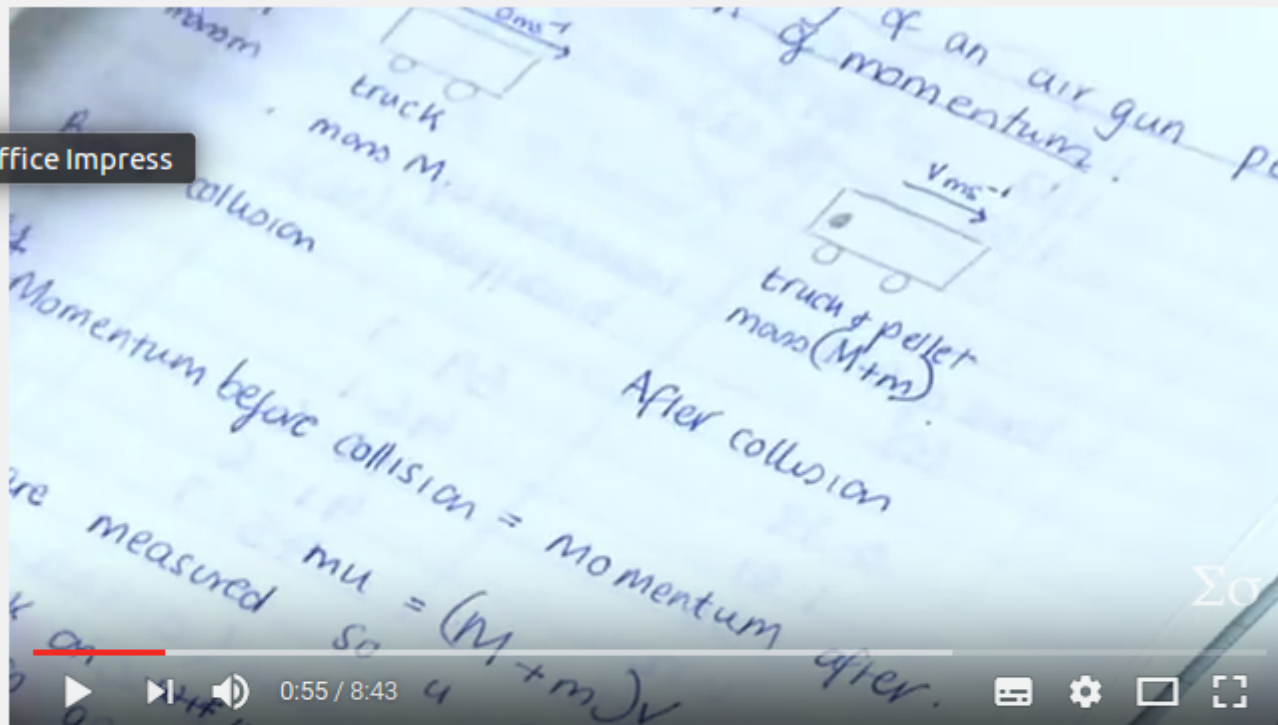 of an air gun
of momentum.
0ms⁻¹
truck
mass M.
ffice Impress
collision
Vms⁻¹
truck & pellet
mass (M+m)
After collision
Momentum before collision = Momentum after.
mu = (M+m)v
measured so u
on
0:55 / 8:43
Σσ